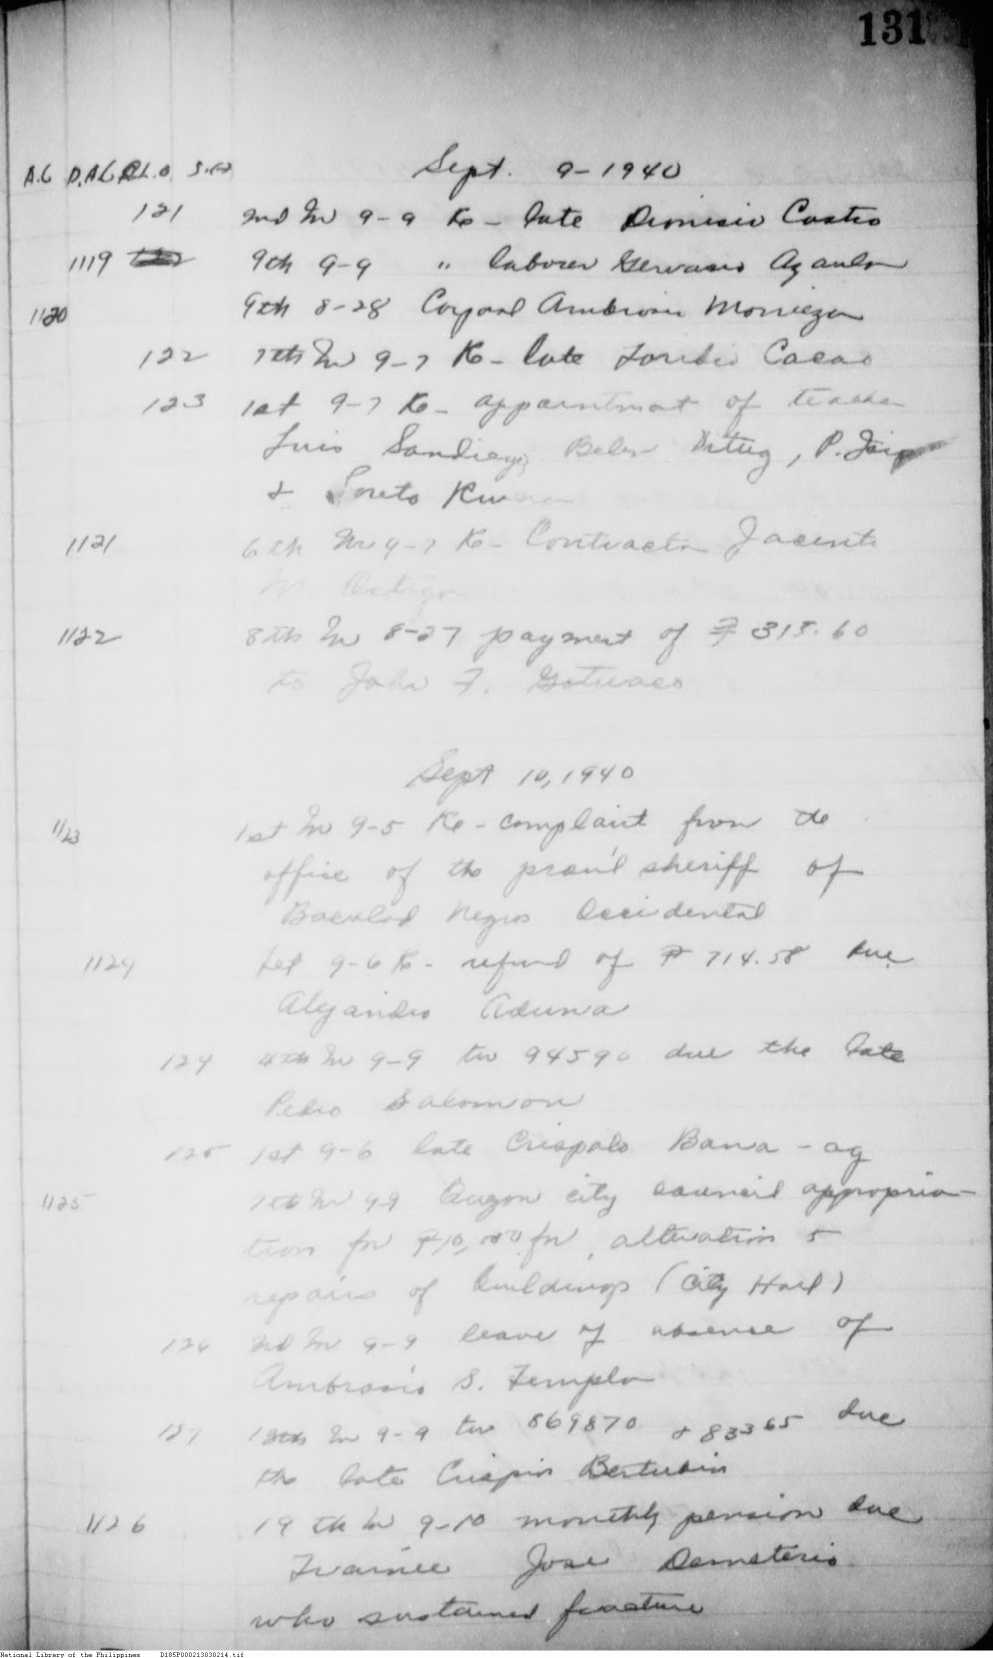 131
A.C D.A.C
Sept. 9-1940
121 2nd In 9-9 Re- late Dionisio Castro
1119 9th 9-9 " laborer Gervasio
1120 9th 8-28 Ambrosio
122 7th In 9-7 Re- late Toribio Cacao
123 1st 9-7 Re- appointment of teacher
Luis Sandiego, Belen Ditug, P.
& Loreto
1121 6th In 9-7 Re- Contractor Jacinto
1122 8th In 8-27 payment of ₱ 315.60
to John F. Gotuaco
Sept 10, 1940
1123 1st In 9-5 Re- complaint from the
office of the prov'l sheriff of
Bacolod Negros Occidental
1124 9-6 Re- refund of ₱ 714.58 due
Alejandro Aduna
124 4th In 9-9 tw 94590 due the late
Pedro Salomon
125 1st 9-6 late Crispulo Bawa-ag
1125 7th In 9-9 Quezon city council appropria-
tion for ₱10,000 for alteration &
repairs of buildings (City Hall)
126 2nd In 9-9 leave of absence of
Ambrosio S. Templo
127 18th In 9-9 tw 869870 & 83365 due
the late Crispin Bertubin
1126 19th In 9-10 monthly pension due
Trainee Jose Demeterio
who sustained fracture
National Library of the Philippines D185P000213030214.tif